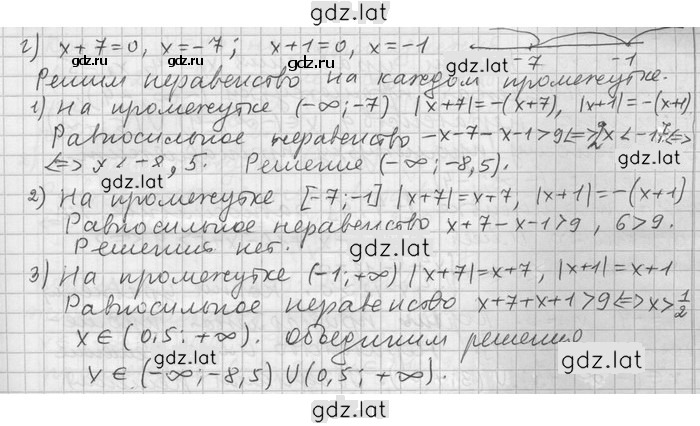 gdz.lat
г) x+7=0, x=-7; x+1=0, x=-1
-7 -1
gdz.lat gdz.lat
Решим неравенство на каждом промежутке.
1) На промежутке (-∞;-7) |x+7|=-(x+7), |x+1|=-(x+1)
gdz.lat gdz.lat
Равносильное неравенство -x-7-x-1>9⟺2x<-17⟺
⟺ x<-8,5. Решение (-∞;-8,5).
gdz.lat gdz.lat
2) На промежутке [-7;-1] |x+7|=x+7, |x+1|=-(x+1)
Равносильное неравенство x+7-x-1>9, 6>9.
gdz.lat gdz.lat
Решений нет.
3) На промежутке (-1;+∞) |x+7|=x+7, |x+1|=x+1
gdz.lat gdz.lat
Равносильное неравенство x+7+x+1>9⟺x>1/2
x∈(0,5;+∞). Объединим решения
gdz.lat gdz.lat
x∈(-∞;-8,5)∪(0,5;+∞).
gdz.lat